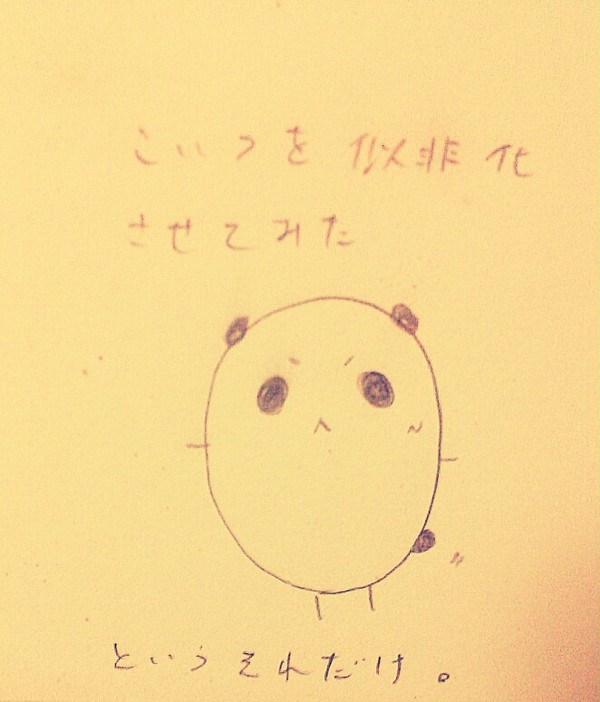 こいつを似非化
させてみた
というそれだけ。